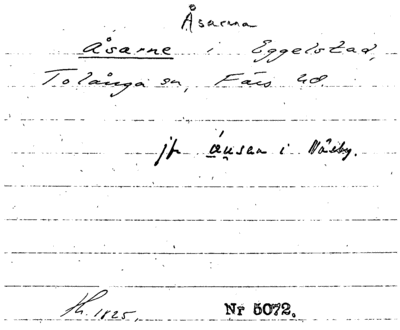 Åsarna
Åsarne i Eggelstad,
Tolånga sn, Färs hd.
jfr åusen i Näsby.
1825,
Nr 5072.